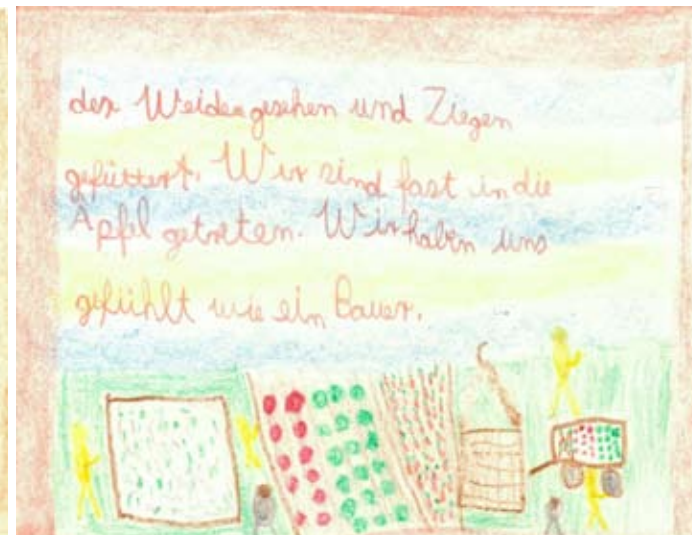 der Weide gesehen und Ziegen
gefüttert. Wir sind fast in die
Äpfel getreten. Wir haben uns
gefühlt wie ein Bauer.